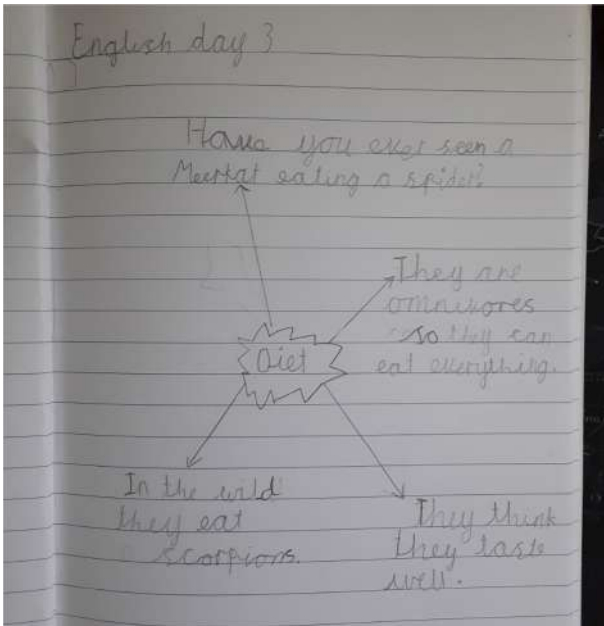 English day 3
Have you ever seen a
Meerkat eating a spider?
They are
omnivores
so they can
eat everything.
Diet
In the wild
they eat
scorpions.
They think
they taste
well.